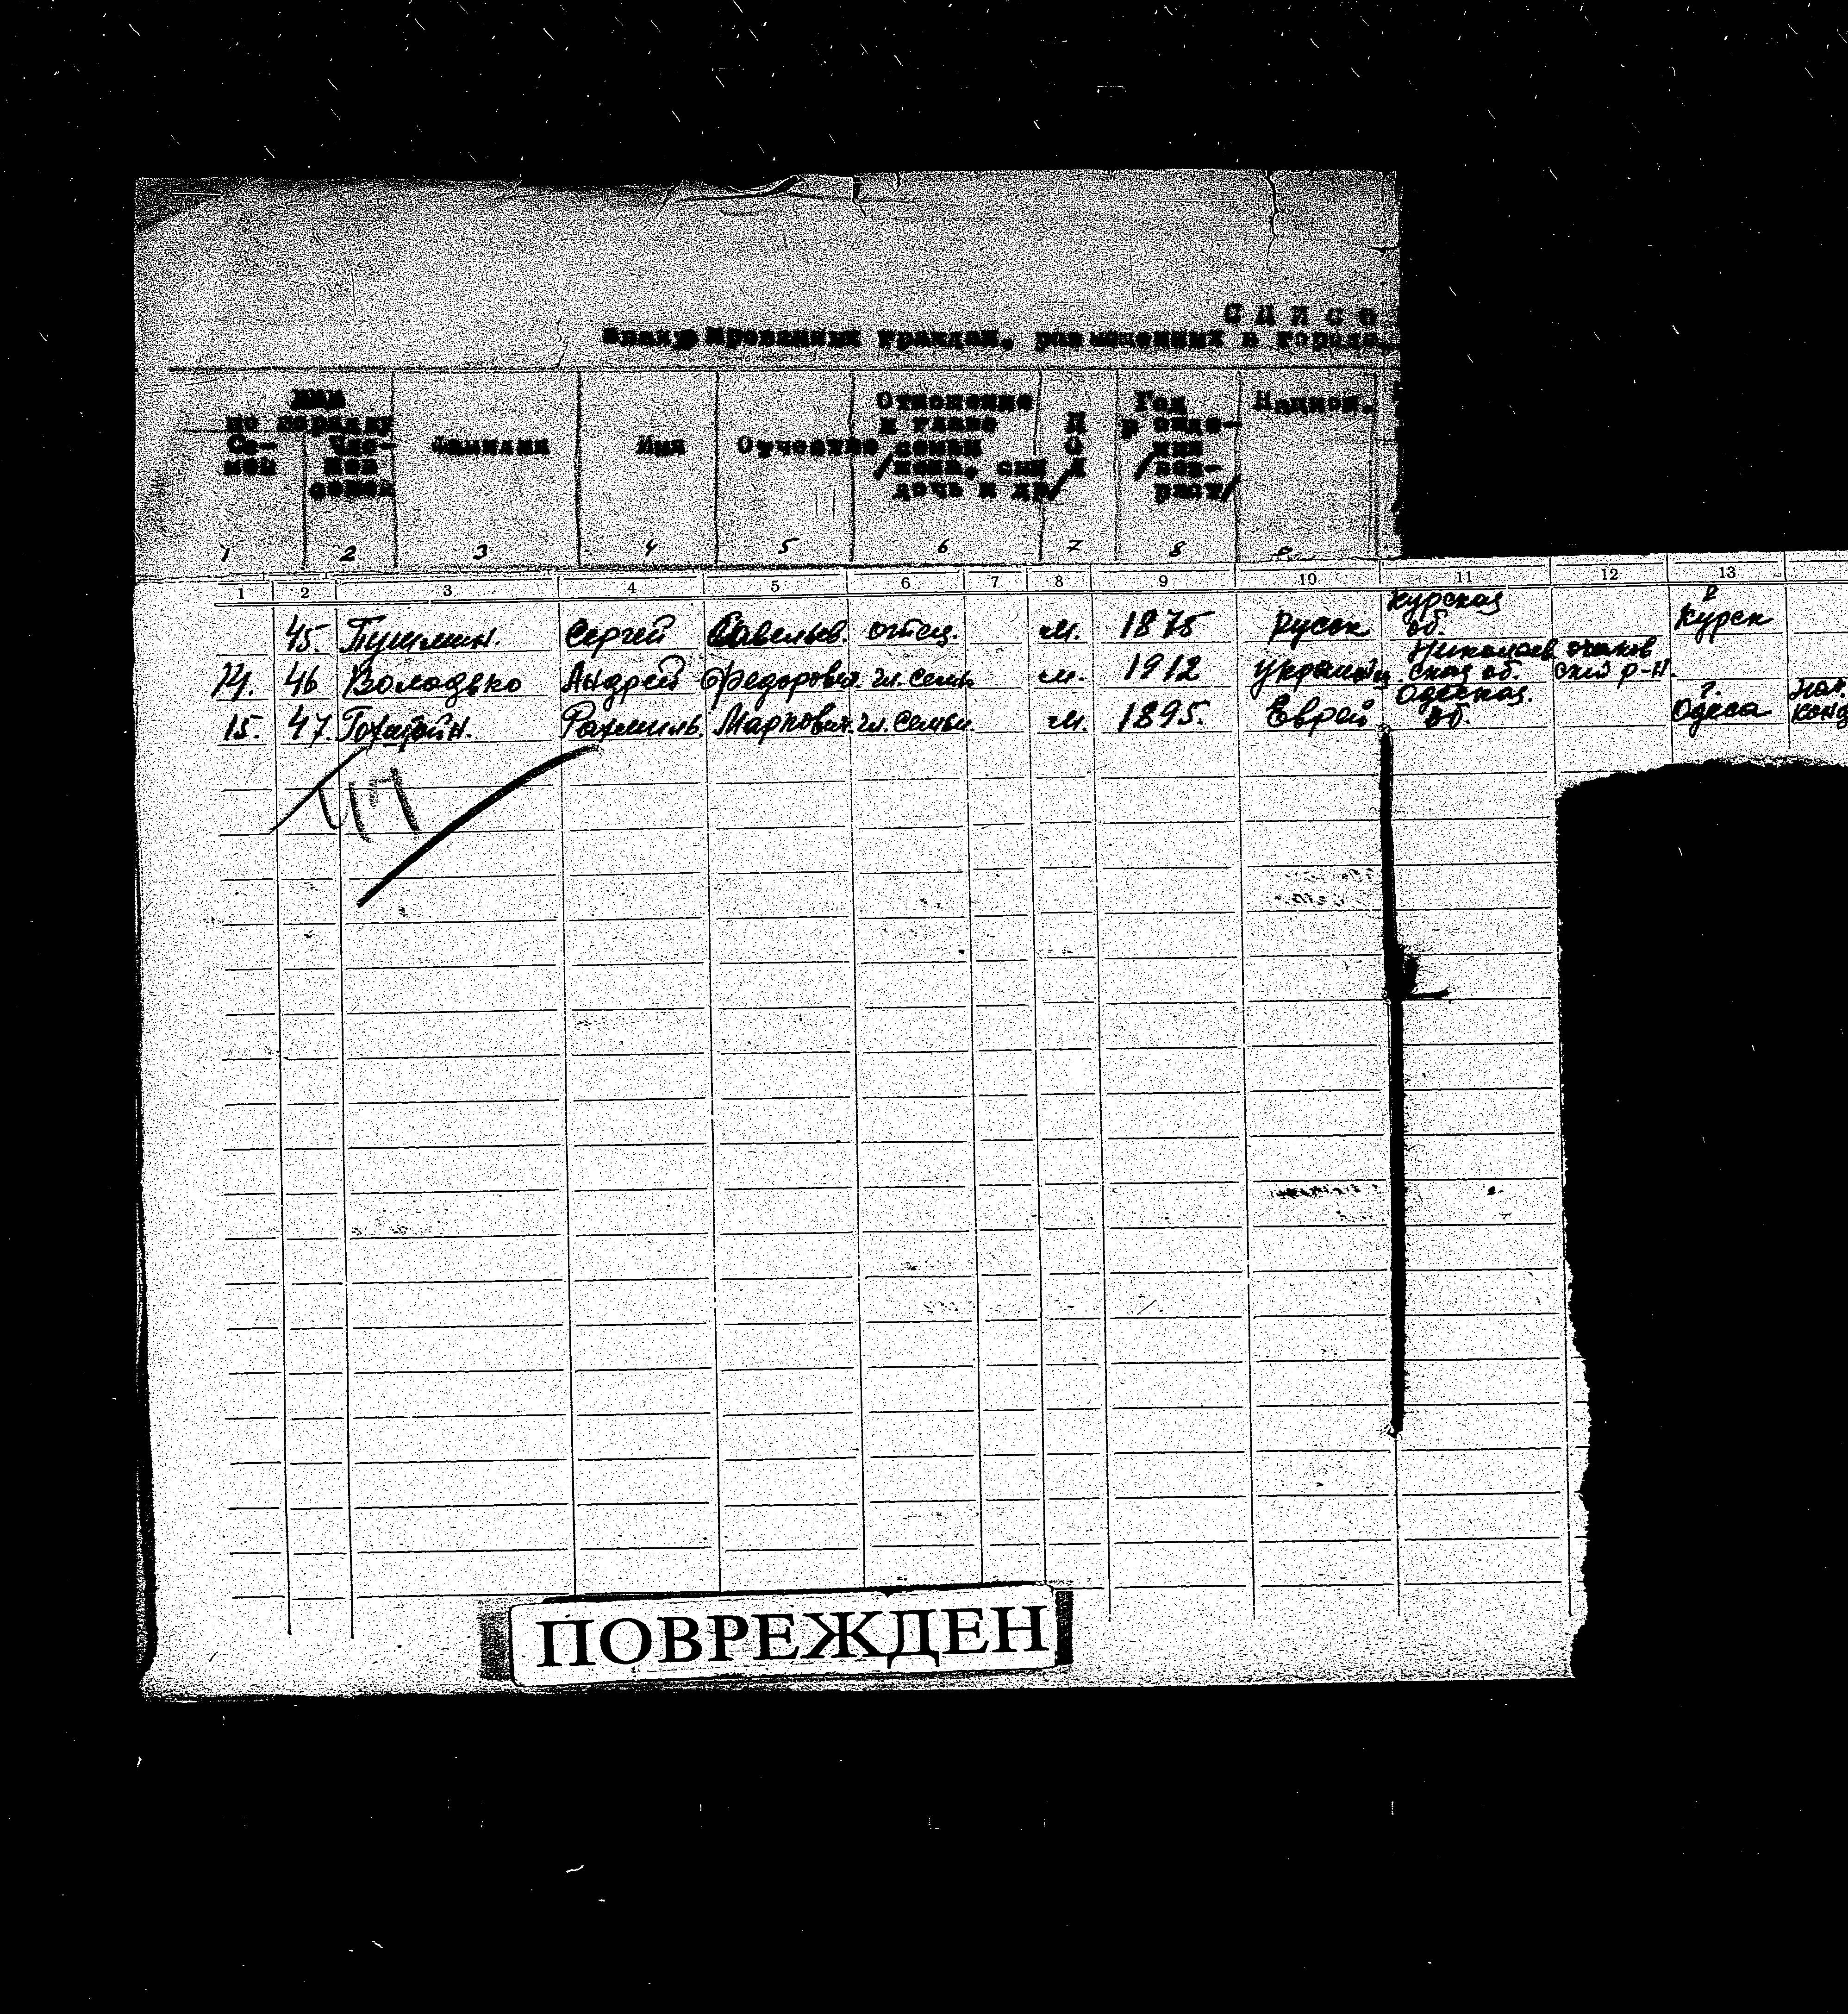 СПИСО
эвакуированных граждан, размещенных в городе
№№ по порядку
Се-мей
Чле-нов семей
Фамилия
Имя
Отчество
Отношение к главе семьи /жена, сын дочь и др/
ПОЛ
Год рожде-ния /воз-раст/
Национ.
1 2 3 4 5 6 7 8 9
1 2 3 4 5 6 7 8 9 10 11 12 13
45. Пушмин. Сергей Савельев. отец. м. 1875 Русск Курская об. г Курск
14. 46 Володько Андрей Федорович. гл. семьи м. 1912 украинц Николаев ская об. очаков ский р-н.
15. 47. Рахмиль. Маркович. гл. семьи. м. 1895. Еврей Одесская. об. г. Одеса
47
ПОВРЕЖДЕН